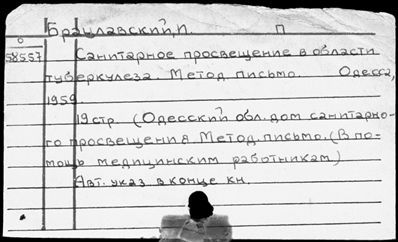 Брацлавский, П. П
0
58557 Санитарное просвещение в области
туберкулеза. Метод. письмо. Одесса,
1959
19 стр. (Одесский обл. дом санитарно-
го просвещения Метод. письмо. (В по-
мощь медицинским работникам)
Авт. указ. в конце кн.